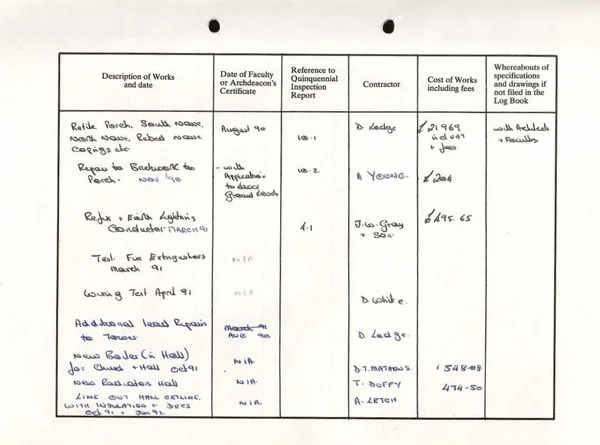 Description of Works
and date
Date of Faculty
or Archdeacon's
Certificate
Reference to
Quinquennial
Inspection
Report
Contractor
Cost of Works
including fees
Whereabouts of
specifications
and drawings if
not filed in the
Log Book
Retile Porch, South Nave,
North Nave, Rebed nave
Copings etc
August 90
10.1
D. Ledge
£21969
incl VAT
+ fees
with Architect
+ Faculty
Repair to Brickwork to
Porch. NOV '90
- with
Application
to
Ground
10.2
A YOUNG.
£204
Refix + Earth Lightning
Conductor MARCH 91
4.1
J.W. Gray
+ Son.
£498.65
Test Fire Extinguishers
March 91
N/A
Wiring Test April 91
N/A
D. White.
Additional lead Repairs
to Tower
March 91
AUG 90
D. Ledge.
New Boiler (in Hall)
for Church + Hall Oct 91
N/A
D.T. MATHEWS
1548-08
New Radiators Hall
N/A
T. DUFFY
474-50
LINE OUT HALL CEILING.
WITH INSULATION +
Oct 91 + Jan 92.
N/A
A. LETCH